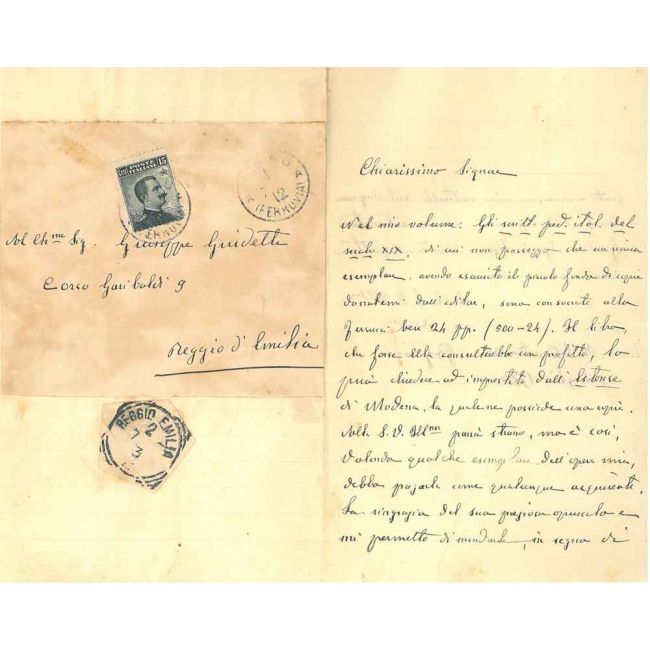 POSTE ITALIANE 15
12
(FERROVIA)
All Ch.mo Sig. Giuseppe Guidetti
Corso Garibaldi 9
Reggio d'Emilia
REGGIO EMILIA
2
7
3
Chiarissimo Signore
Nel mio volume: Gli scritt. ped. ital. del
secolo XIX, di cui non posseggo che un'unica
esemplare, avendo esaurito il piccolo fondo di copie
donatemi dall'editore, sono consacrate alla
Ferrucci ben 24 pp. (500-24). Il libro,
che forse Ella consulterebbe con profitto, lo
può chiedere ad imprestito dall'Estense
di Modena, la quale ne possiede una copia.
Alla S. V. Ill.ma parrà strano, ma è così,
volendo qualche esemplare dell'opera mia,
debbo pagarla come qualunque acquirente.
La ringrazio del suo prezioso opuscolo e
mi permetto di mandarle, in segno di